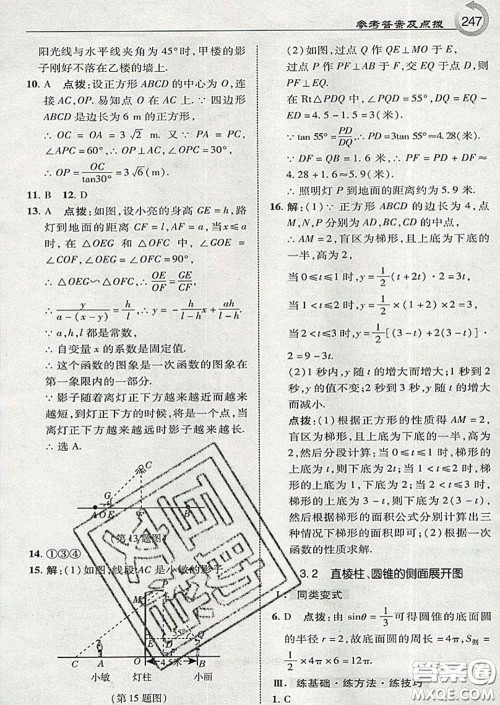 参考答案及点拨 247
阳光线与水平线夹角为45°时,甲楼的影
子刚好不落在乙楼的墙上.
10. A 点拨:设正方形ABCD的中心为O,连
接AC,OP.易知点O在AC上.∵四边形
ABCD是边长为6 m的正方形,
∴OC=OA=3√2 m.又∵PA=PC,
∠APC=60°,∴∠OPC=30°,
∴OP=OC/tan30°=3√6(m).
11. B 12. D
13. A 点拨:如图,设小亮的身高GE=h,路
灯到地面的距离CF=l,AF=a,当x≤a
时,在△OEG和△OFC中,∠GOE=
∠COF,∠OEG=∠OFC=90°,
∴△OEG∽△OFC,∴OE/OF=GE/CF,
∴y/(a-(x-y))=h/l,∴y=-h/(l-h)x+ah/(l-h).
∵a,h,l都是常数,
∴自变量x的系数是固定值.
∴这个函数图象是一次函数的图象在
第一象限内的一部分.
∵影子随着离灯下方越来越近而越来
越短,到灯正下方的时候,将是一个点,
离灯正下方越来越远则影子越来越长.
∴选A.
C
G
A O E F B
(第13题图)
14. ①③④
15. 解:(1)如图,线段AC是小敏的影子.
55°
4.5米
小敏 灯柱 小丽
(第15题图)
(2)如图,过点Q作QE⊥MO于点E,
过点P作PF⊥AB于点F,交EQ于点D,
则PF⊥EQ.
在Rt△PDQ中,∠PQD=55°,DQ=EQ-
ED=4.5-1.5=3(米).
∵tan 55°=PD/DQ,∴PD=3tan 55°≈4.28(米).
∵DF=QB=1.6米,∴PF=PD+DF≈
4.28+1.6≈5.9(米).
∴照明灯P到地面的距离约为5.9米.
16. 解:(1)∵正方形ABCD的边长为4,点
M,N,P分别为AD,BC,CD的中点,
∴AM=2,盲区为梯形,且上底为下底的
一半,高为2.
当0≤t≤1时,y=1/2(t+2t)·2=3t,
当1<t≤2时,y=1/2(1+2)·2=3,
当2<t≤3时,y=1/2[(3-t)+2(3-t)]·
2=9-3t.
(2)1秒内,y随t的增大而增大;1秒到2
秒,y的值不变;2秒到3秒,y随t的增大
而减小.
点拨:(1)根据正方形的性质得AM=2,
盲区为梯形,且上底为下底的一半,高为2,
然后分段计算:当0≤t≤1时,根据梯形
的面积公式得y=3t;当1<t≤2时,梯形
的上底为1,下底为2;当2<t≤3时,梯
形的上底为3-t,下底为2(3-t),再利
用梯形的面积公式分别计算.(2)根据一次
函数的性质求解.
3.2 直棱柱、圆锥的侧面展开图
Ⅰ. 同类变式
6. D 点拨:由sinθ=1/3可得圆锥的底面的
半径r=2,故底面圆的周长=4π,S侧=
1/2×4π×6=12π.
Ⅲ. 练基础·练方法·练技巧
1. C
答案圈
MXQE.COM